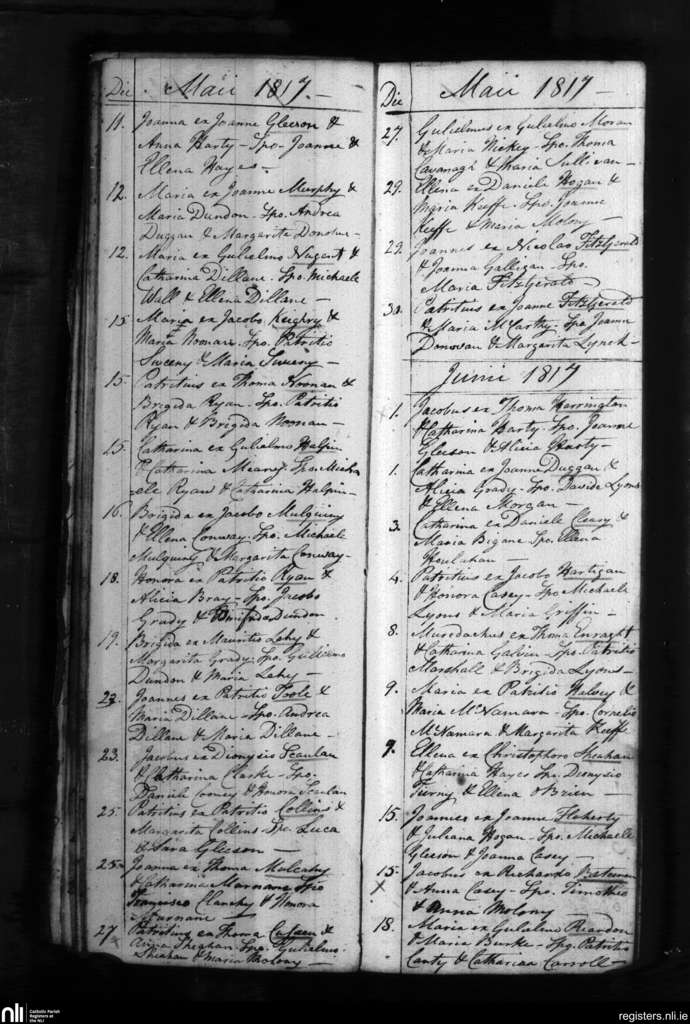 Die Maii 1817.
11. Joanna ex Joanne Gleeson &
Anna Harty - Spo. Joanne &
Ellena Hayes -
12. Maria ex Joanne Murphy &
Maria Dundon - Spo. Andrea
Duggan & Margarita Donohue -
12. Maria ex Gulielmo Nugent &
Catharina Dillane - Spo. Michaele
Wall & Ellena Dillane -
15 Maria ex Jacobo &
Maria Noonan. Spo. Patritio
Sweeny & Maria Sweeny -
15. Patritius ex Thoma Noonan &
Brigida Ryan - Spo. Patritio
Ryan & Brigida Noonan -
15. Catharina ex Gulielmo Halpin
& Catharina Meany. Spo. Micha
ele Ryan & Catharina Halpin -
16. Brigida ex Jacobo Mulquiny
& Ellena Conway - Spo. Michaele
Mulquiny & Margarita Conway -
18. Honora ex Patritio Ryan &
Alicia Bray - Spo. Jacobo
Grady & Dundon
19. Brigida ex Mauritio Lehy &
Margarita Grady - Spo. Gulielmo
Dundon & Maria Lehy -
22. Joannes ex Patritio Toole &
Maria Dillane - Spo. Andrea
Dillane & Maria Dillane -
23. Jacobus ex Dionysio Scanlan
& Catharina Clarke - Spo.
Daniele Cooney & Honora Scanlan
25 Patritius ex Patritio Collins &
Margarita Collins Spo. Luca
& Sara Gleeson -
25 Joanna ex Thoma Mulcahy
& Catharina Marnane Spo
Francisco Clanchy & Honora
Murnane -
27 Patritius ex Thoma &
Anna Sheahan Spo. Gulielmo
Sheahan & Maria Molony
Die Maii 1817
27. Gulielmus ex Gulielmo Moran
& Maria Hickey - Spo. Thoma
Cavanagh & Maria Sullivan -
29. Ellena ex Daniele Hogan &
Maria Keeffe - Spo. Joanne
Keeffe & Maria Molony -
29. Joannes ex Nicolao Fitzgerald
& Joanna Galligan Spo.
Maria Fitzgerald -
30. Patritius ex Joanne Fitzgerald
& Maria McCarthy - Spo. Joanne
Donovan & Margarita Lynch -
Junii 1817
1. Jacobus ex Thoma Harrington
& Catharina Harty - Spo. Joanne
Gleeson & Alicia Harty -
1. Catharina ex Joanne Duggan &
Alicia Grady - Spo. Davide Lyons
& Ellena Morgan
3. Catharina ex Daniele Cleary &
Maria Bigane Spo. Ellena
Houlahan -
4. Patritius ex Jacobo Hartigan
& Honora Casey - Spo Michaele
Lyons & Maria Griffin -
8. Murdachus ex Thoma Enraght
& Catharina Galvin - Spo. Patritio
Marshall & Brigida Lyons -
9. Maria ex Patritio Halvey &
Maria McNamara - Spo. Cornelio
McNamara & Margarita Keeffe
9. Ellena ex Christophoro Sheahan
& Catharina Hayes Spo. Dionysio
Tierny & Ellena OBrien -
15. Joannes ex Joanne Floherty
& Juliana Hogan - Spo. Michaele
Gleeson & Joanna Casey -
15. Jacobus ex Richardo Bateman
x & Anna Casey - Spo. Timotheo
& Anna Molony -
18. Maria ex Gulielmo Reardon
& Maria Burke - Spo. Patritio
Canty & Catharina Carroll -
nli Catholic Parish
Registers at
the NLI
registers.nli.ie